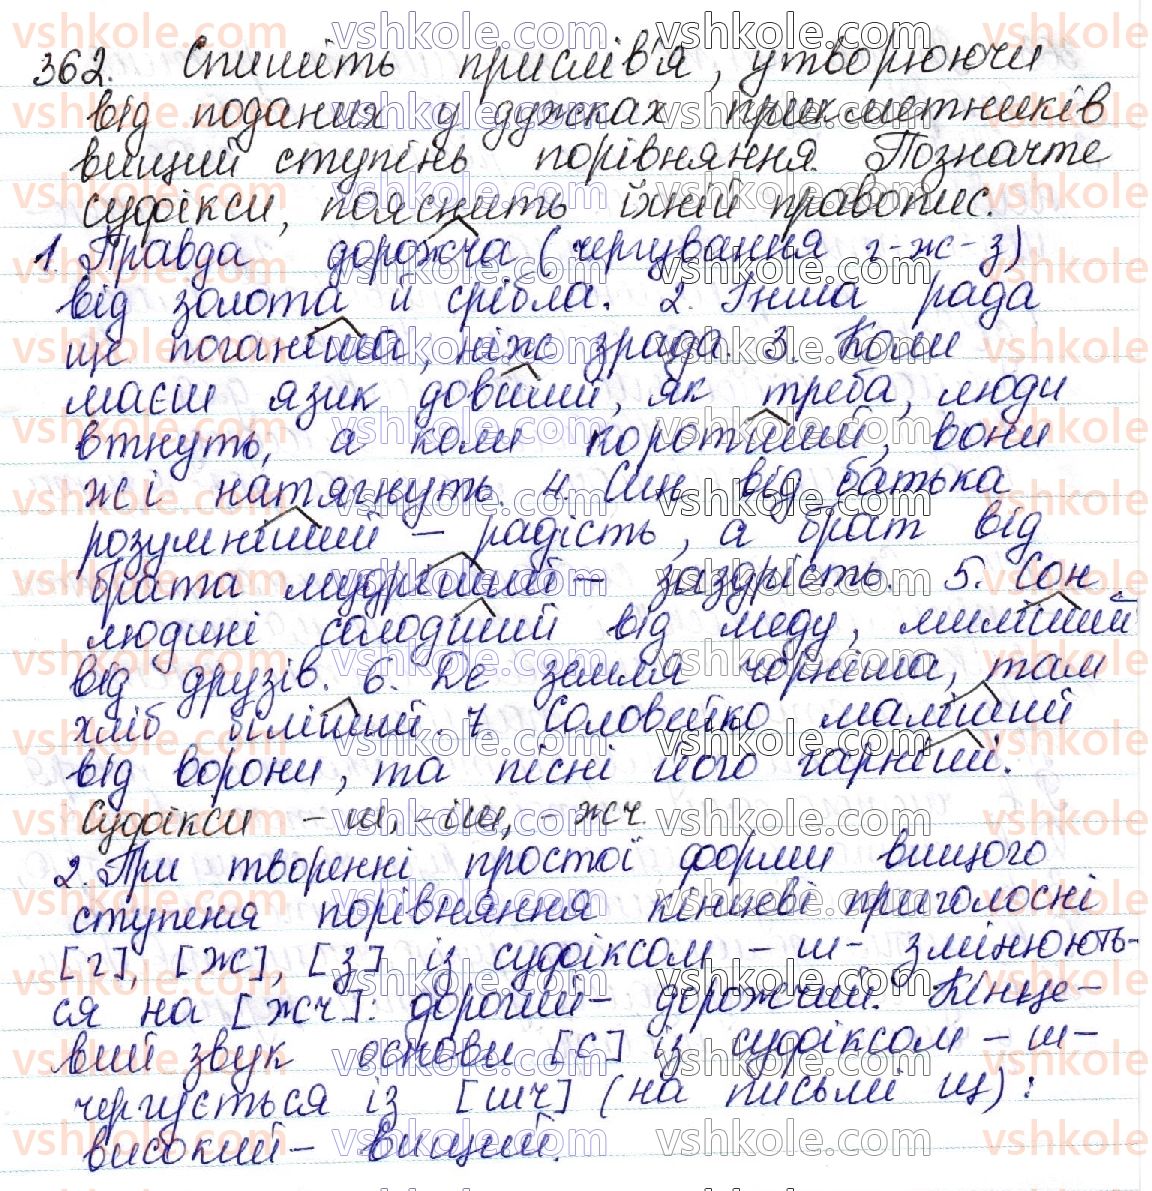 362. Спишіть прислів'я, утворюючи
від поданих у дужках прикметників
вищий ступінь порівняння. Позначте
суфікси, поясніть їхній правопис.
1. Правда дорожча (чергування г-ж-з)
від золота й срібла. 2. Інша рада
ще поганіша, ніж зрада. 3. Коли
маєш язик довший, як треба, люди
втнуть, а коли коротший, вони
жі натягнуть. 4. Син від батька
розумніший – радість, а брат від
брата мудріший – заздрість. 5. Сон
людині солодший від меду, миліший
від друзів. 6. Де земля чорніша, там
хліб біліший. 7. Соловейко маліший
від ворони, та пісні його гарніші.
Суфікси – ш, -іш, - жч.
2. При творенні простої форми вищого
ступеня порівняння кінцеві приголосні
[г], [ж], [з] із суфіксом – ш- змінюють-
ся на [жч]: дорогий – дорожчий. Кінце-
вий звук основи [с] із суфіксом – ш –
чергується із [шч] (на письмі щ):
високий – вищий.